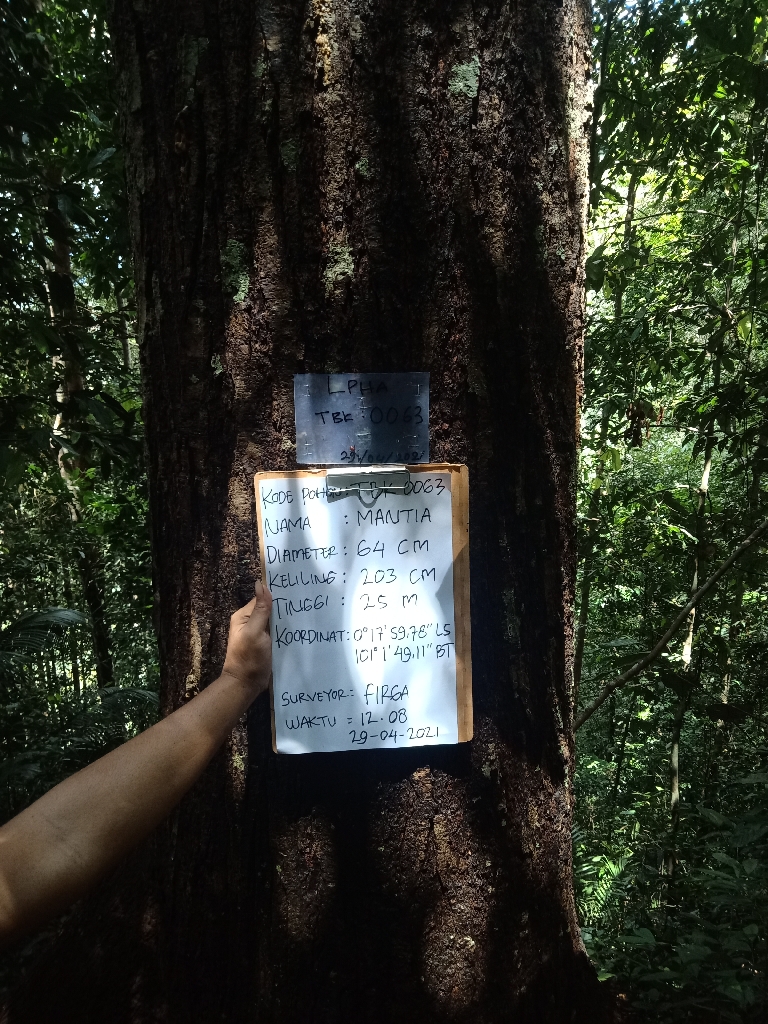 LPHA
TBK : 0063
29/04/2021
KODE POHON : TBK 0063
NAMA : MANTIA
DIAMETER : 64 CM
KELILING : 203 CM
TINGGI : 25 M
KOORDINAT : 0°17'59.78" LS
101°1'49.11" BT
SURVEYOR = FIRGA
WAKTU = 12.08
29-04-2021